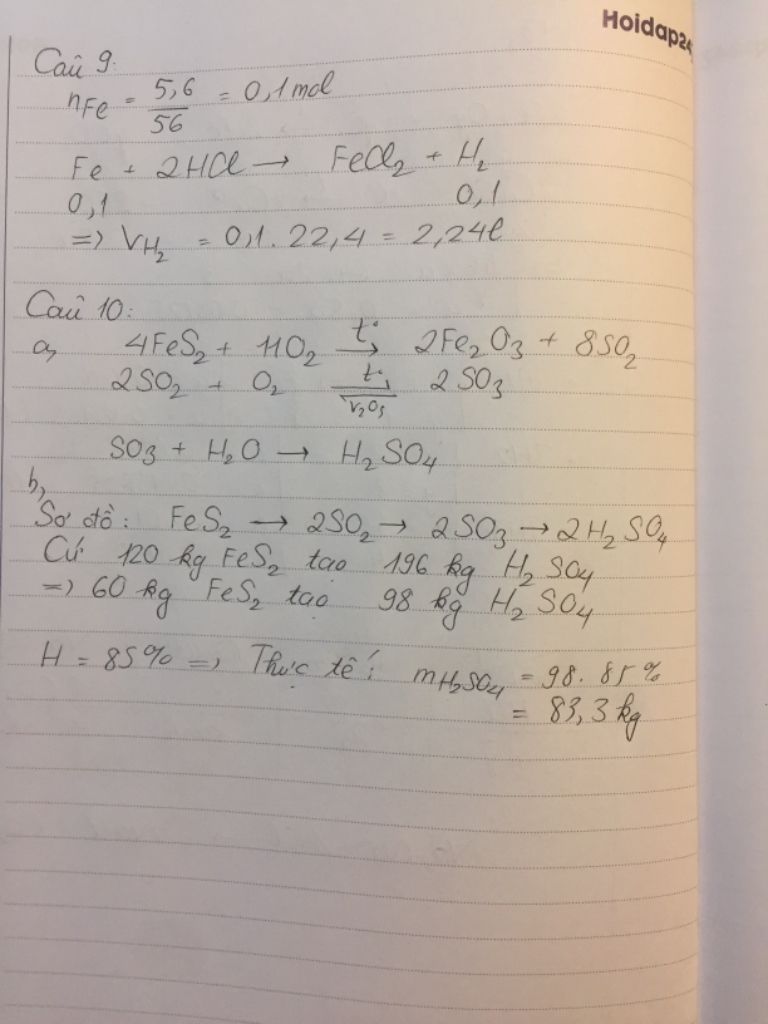 Hoidap24
Câu 9:
nFe = 5,6/56 = 0,1 mol
Fe + 2HCl → FeCl₂ + H₂
0,1 0,1
=> VH₂ = 0,1. 22,4 = 2,24l
Câu 10:
a, 4FeS₂ + 11O₂ →(t°) 2Fe₂O₃ + 8SO₂
2SO₂ + O₂ →(t°, V₂O₅) 2SO₃
SO₃ + H₂O → H₂SO₄
b,
Sơ đồ: FeS₂ → 2SO₂ → 2SO₃ → 2H₂SO₄
Cứ 120 kg FeS₂ tạo 196 kg H₂SO₄
=> 60 kg FeS₂ tạo 98 kg H₂SO₄
H = 85% => Thực tế: mH₂SO₄ = 98. 85%
= 83,3 kg